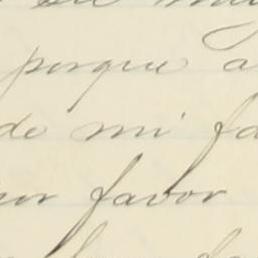 porque a
de mi fa
por favor